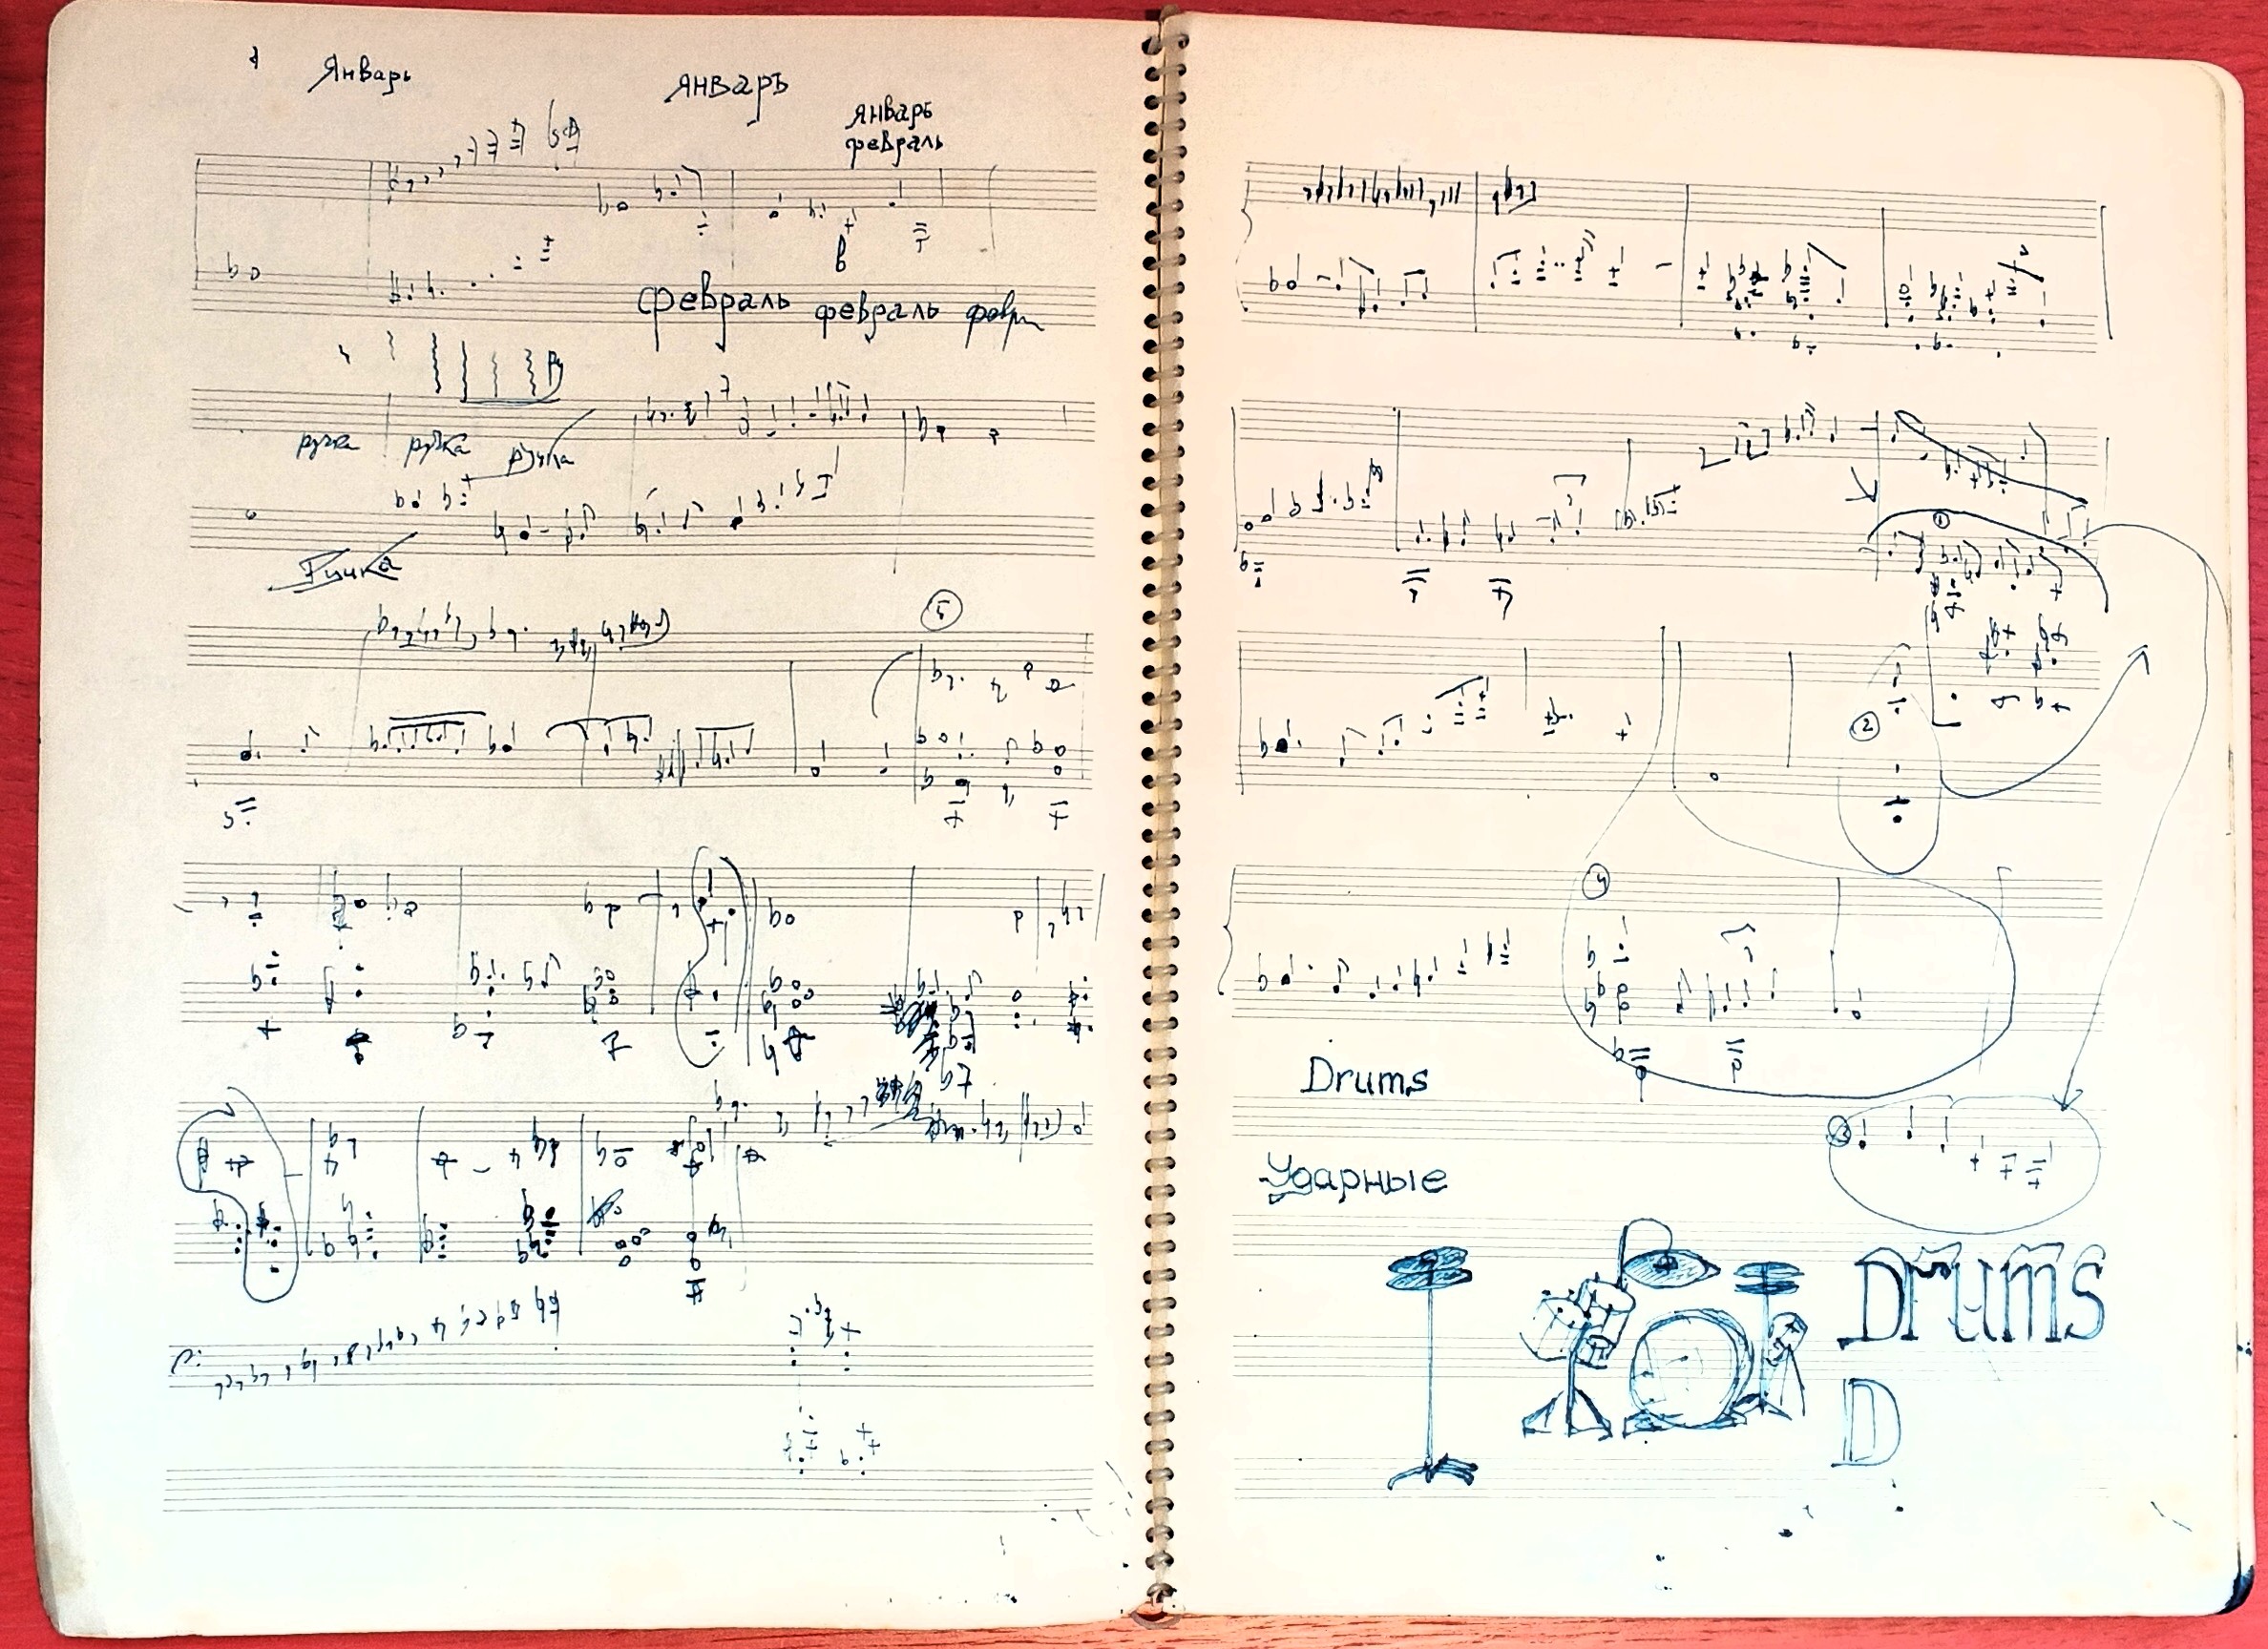 Январь
январь
январь
февраль
в
февраль февраль
ручка ручка ручка
Ручка
5
1
2
4
Drums
3
Ударные
Drums
D